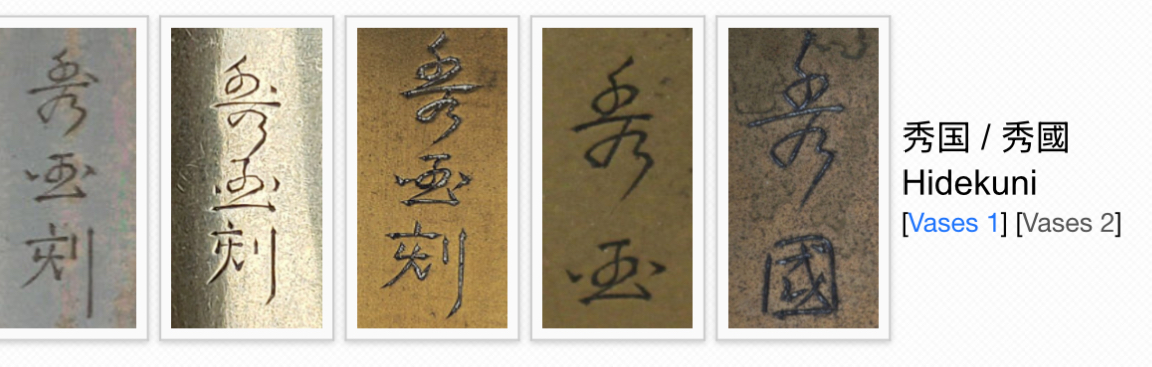 秀国刻
秀国刻
秀国刻
秀国
秀國
秀国 / 秀國
Hidekuni
[Vases 1] [Vases 2]